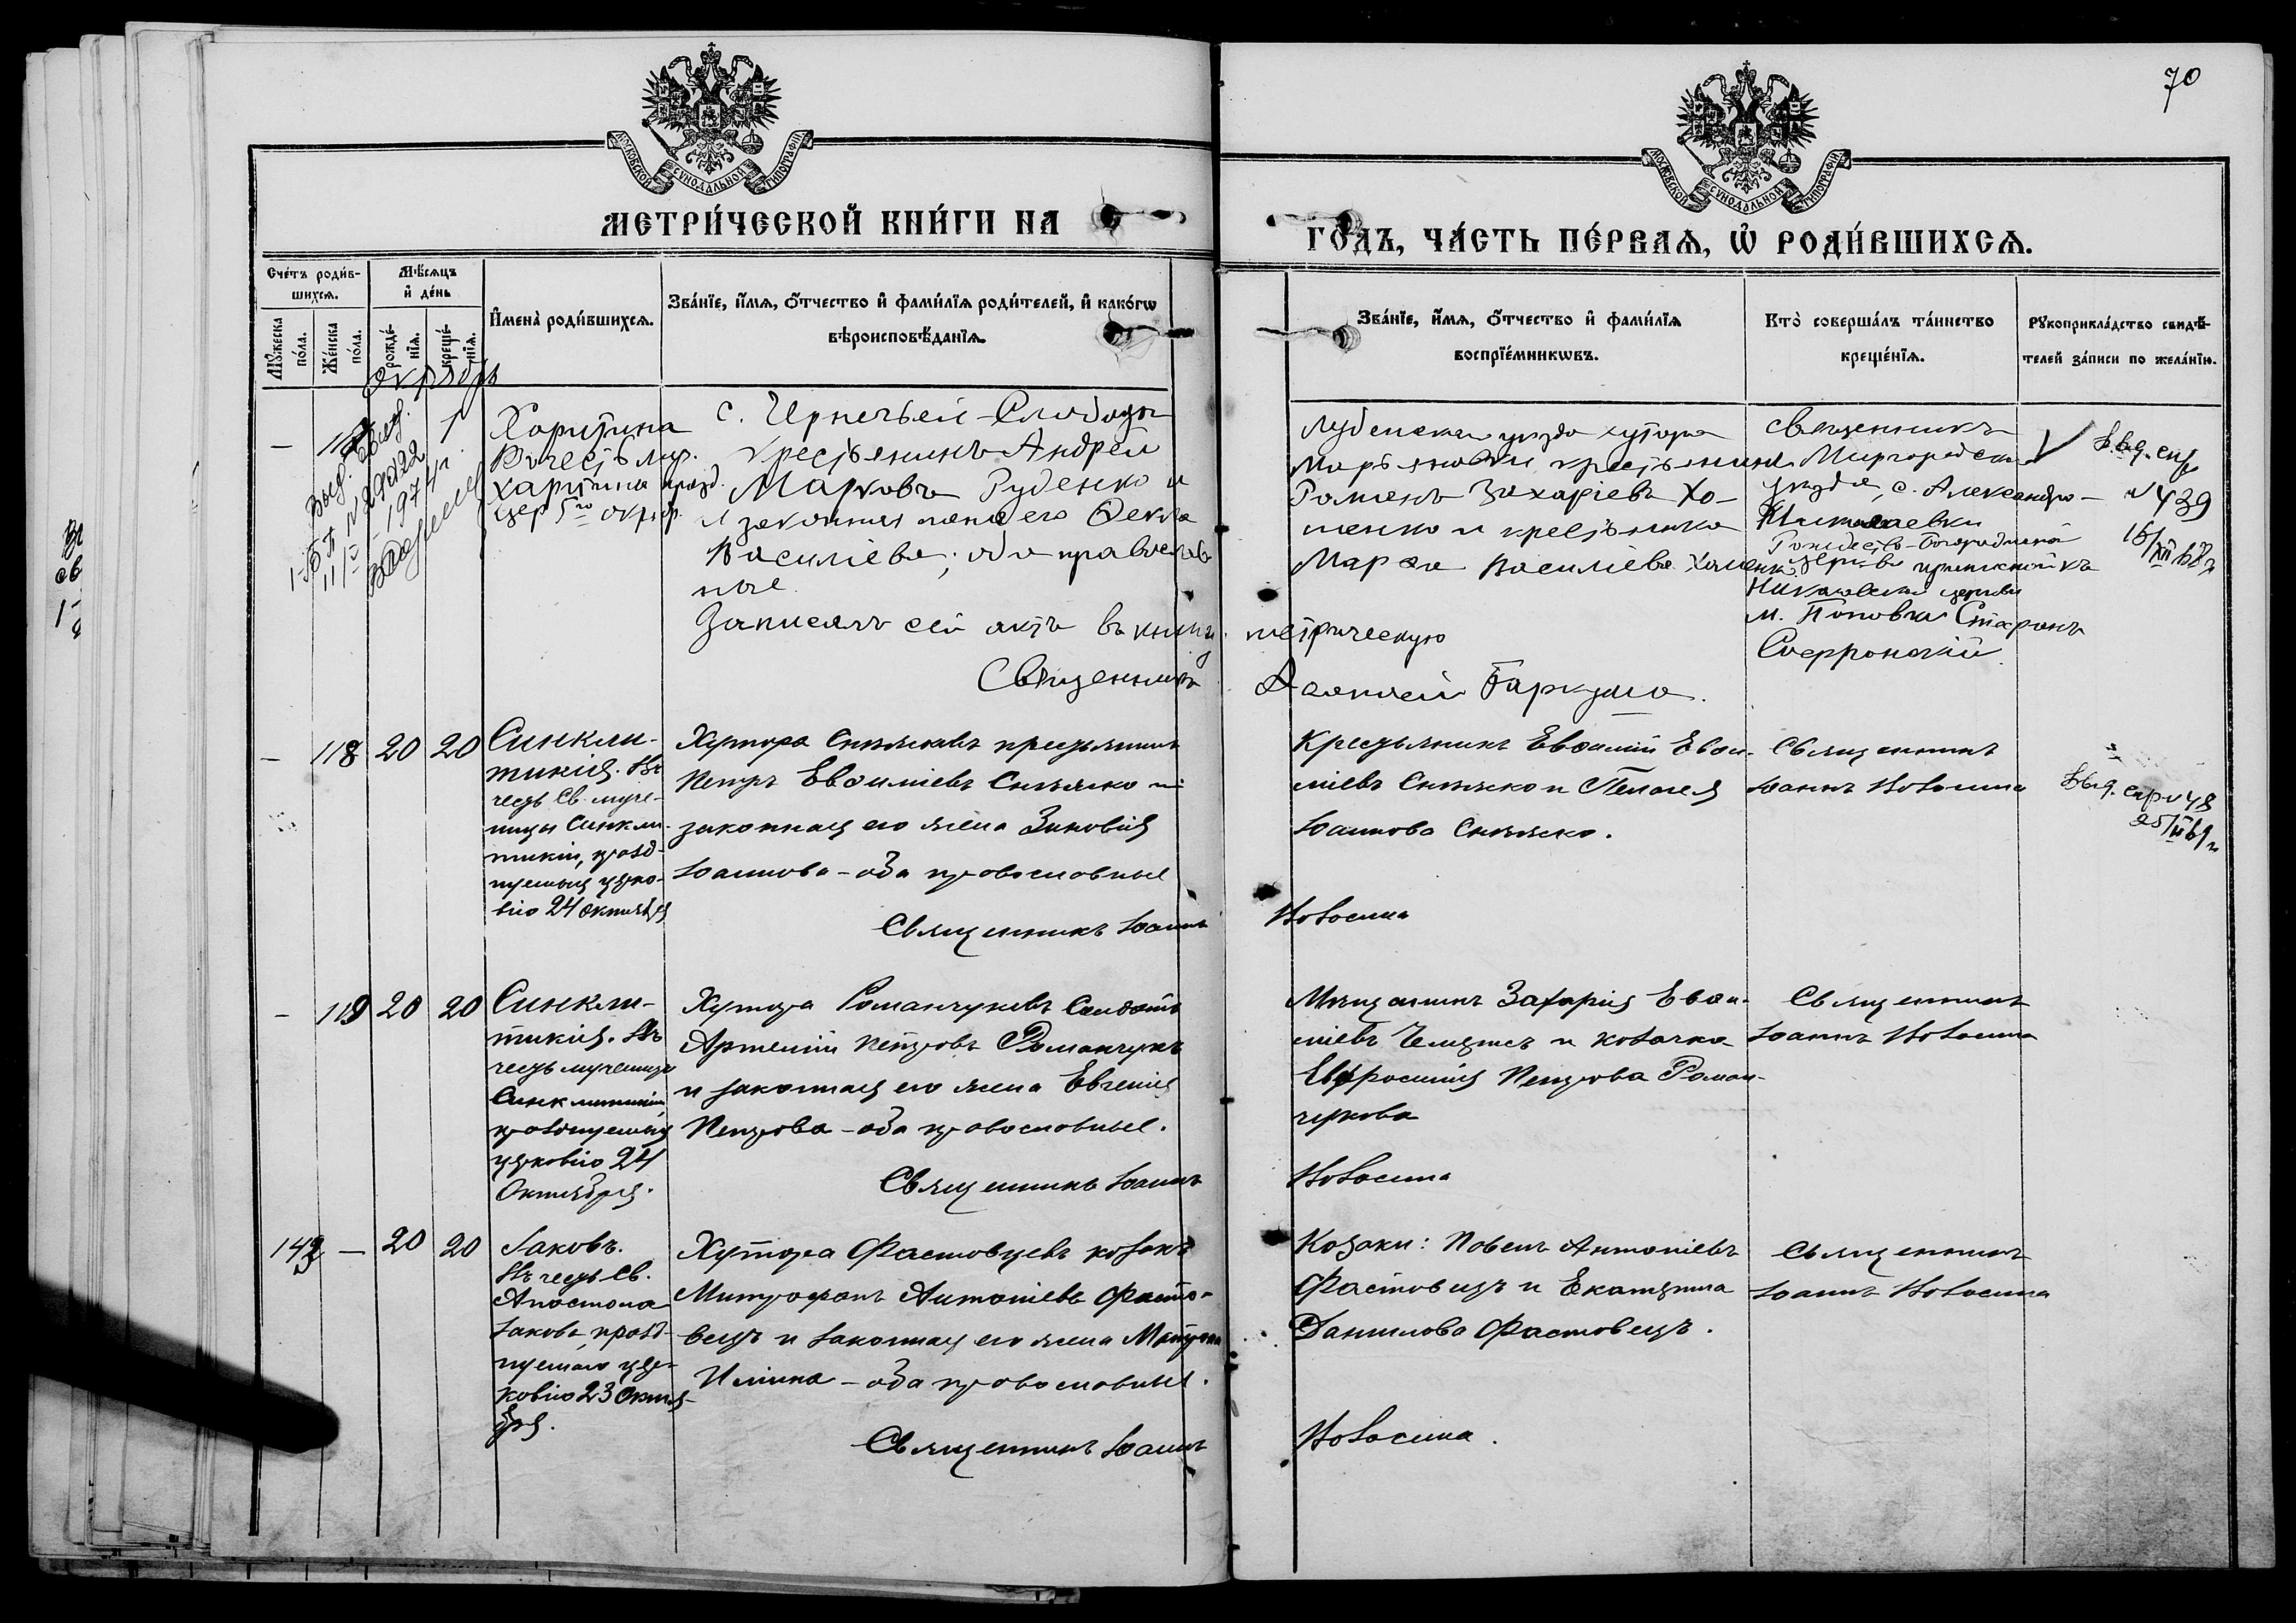 70
МОСКОВСКОЙ СѴНОДАЛЬНОЙ ТИПОГРАФІИ
МОСКОВСКОЙ СѴНОДАЛЬНОЙ ТИПОГРАФІИ
МЕТРИ́ЧЕСКОЙ КНИ́ГИ НА
ГО́ДЪ, ЧА́СТЬ ПЕ́РВАЯ, Ѡ҆ РОДИ́ВШИХСЯ.
Сче́тъ роди́в-
шихся.
Мꙋ́жеска по́ла.
Же́нска по́ла.
Мѣ́сяцъ
и҆ де́нь
рожде́-
нїя.
креще́-
нїя.
И҆мена̀ роди́вшихся.
Зва́нїе, и҆́мя, ѻ҆́тчество и҆ фами́лїя роди́телей, и҆ како́гѡ
вѣроисповѣ́данїя.
Зва́нїе, и҆́мя, ѻ҆́тчество и҆ фами́лїя
воспрїе́мникѡвъ.
Кто̀ соверша́лъ та́инство
креще́нїя.
Рꙋкоприкла́дство свидѣ́-
телей за́писи по жела́нїю.
Октябрь
1
Харитина
Въ честь муч.
Харитина празд.
цер 5го октяб.
с. Чернечьей-Слободы
крестьянинъ Андрей
Марковъ Руденко и
законная жена его Ѳекла
Васильева; оба православ
ные
Записалъ сей актъ въ книгу метрическую
Священникъ
Лубенскаго уѣзда хутора
Марьяновки, крестьянинъ
Романъ Захаріевъ Хо-
менко и крестьянка
Марѳа Васильева Хоменко
Священникъ
Миргородскаго
уѣзда, с. Александро-
Николаевки
Рождество-Богородичной
церкви приписной къ
Николаевской церкви
м. Поповки Стефанъ
Софроновій
Выд. спр
N 439
16/XII 68 г
118 20 20
Синкли-
тикія. Въ
честь Св. муче-
ницы Синкли-
тикіи, празд-
нуемыя церко-
вію 24 Октября
Хутора Снѣжковъ крестьянинъ
Петръ Евѳиміевъ Снѣжко и
законная его жена Зиновія
Іоаннова - оба православные
Священникъ Іоаннъ
Крестьянинъ Евѳимій Евѳи-
міевъ Снѣжко и Пелагея
Іоаннова Снѣжко.
Священникъ
Іоаннъ
Выд. спр N 48
25/II 69 г
119 20 20
Синкли-
тикія. Въ
честь мученицы
Синклитикіи,
празднуемыя
церковію 24
Октября.
Хутора Романчуковъ Солдатъ
Артемій Петровъ Романчукъ
и законная его жена Евгенія
Петрова - оба православные.
Священникъ Іоаннъ
Мѣщанинъ Захарія Евѳи-
міевъ и козачка
Евфросинія Петрова Роман-
чукова
Священникъ
Іоаннъ
143 — 20 20
Іаковъ.
Въ честь Св.
Апостола
Іакова, празд-
нуемаго цер-
ковію 23 Октя-
бря.
Хутора Фастовцевъ козакъ
Митрофанъ Антоніевъ Фасто-
вецъ и законная его жена Матрона
Ильина - оба православные.
Священникъ Іоаннъ
Козаки: Павелъ Антоніевъ
Фастовецъ и Екатерина
Данилова Фастовецъ.
Священникъ
Іоаннъ